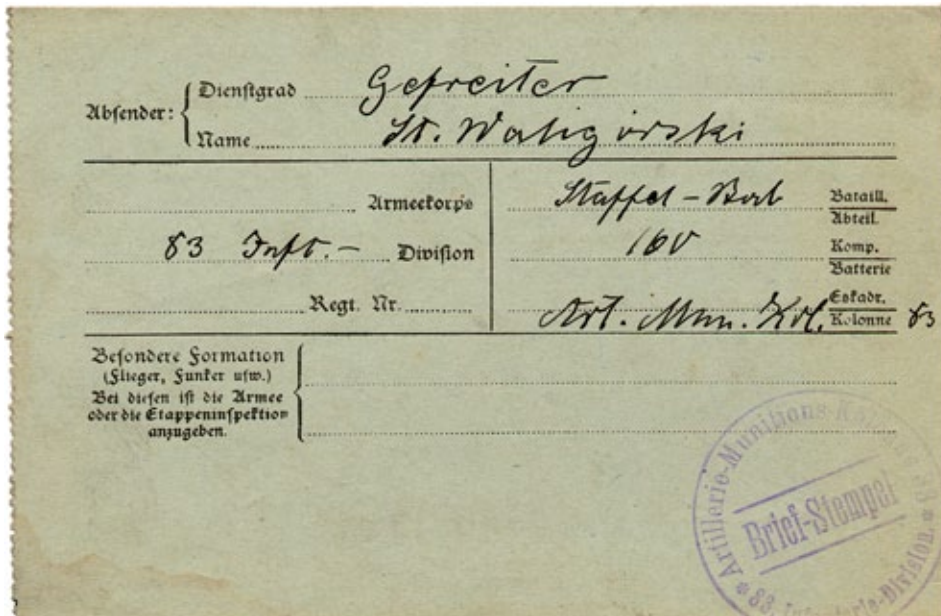 Absender: Dienstgrad Gefreiter
Name St. Waligorski
Armeekorps
83 Inft.- Division
Regt. Nr.
Staffel - Bataill.
Abteil.
160 Komp.
Batterie
Eskadr.
Art. Mun. Kol. Kolonne 83
Besondere Formation
(Flieger, Funker usw.)
Bei diesen ist die Armee
oder die Etappeninspektion
anzugeben.
Artillerie-Munitions-Kolonne 83
Brief-Stempel
* 83. Infanterie-Division. *